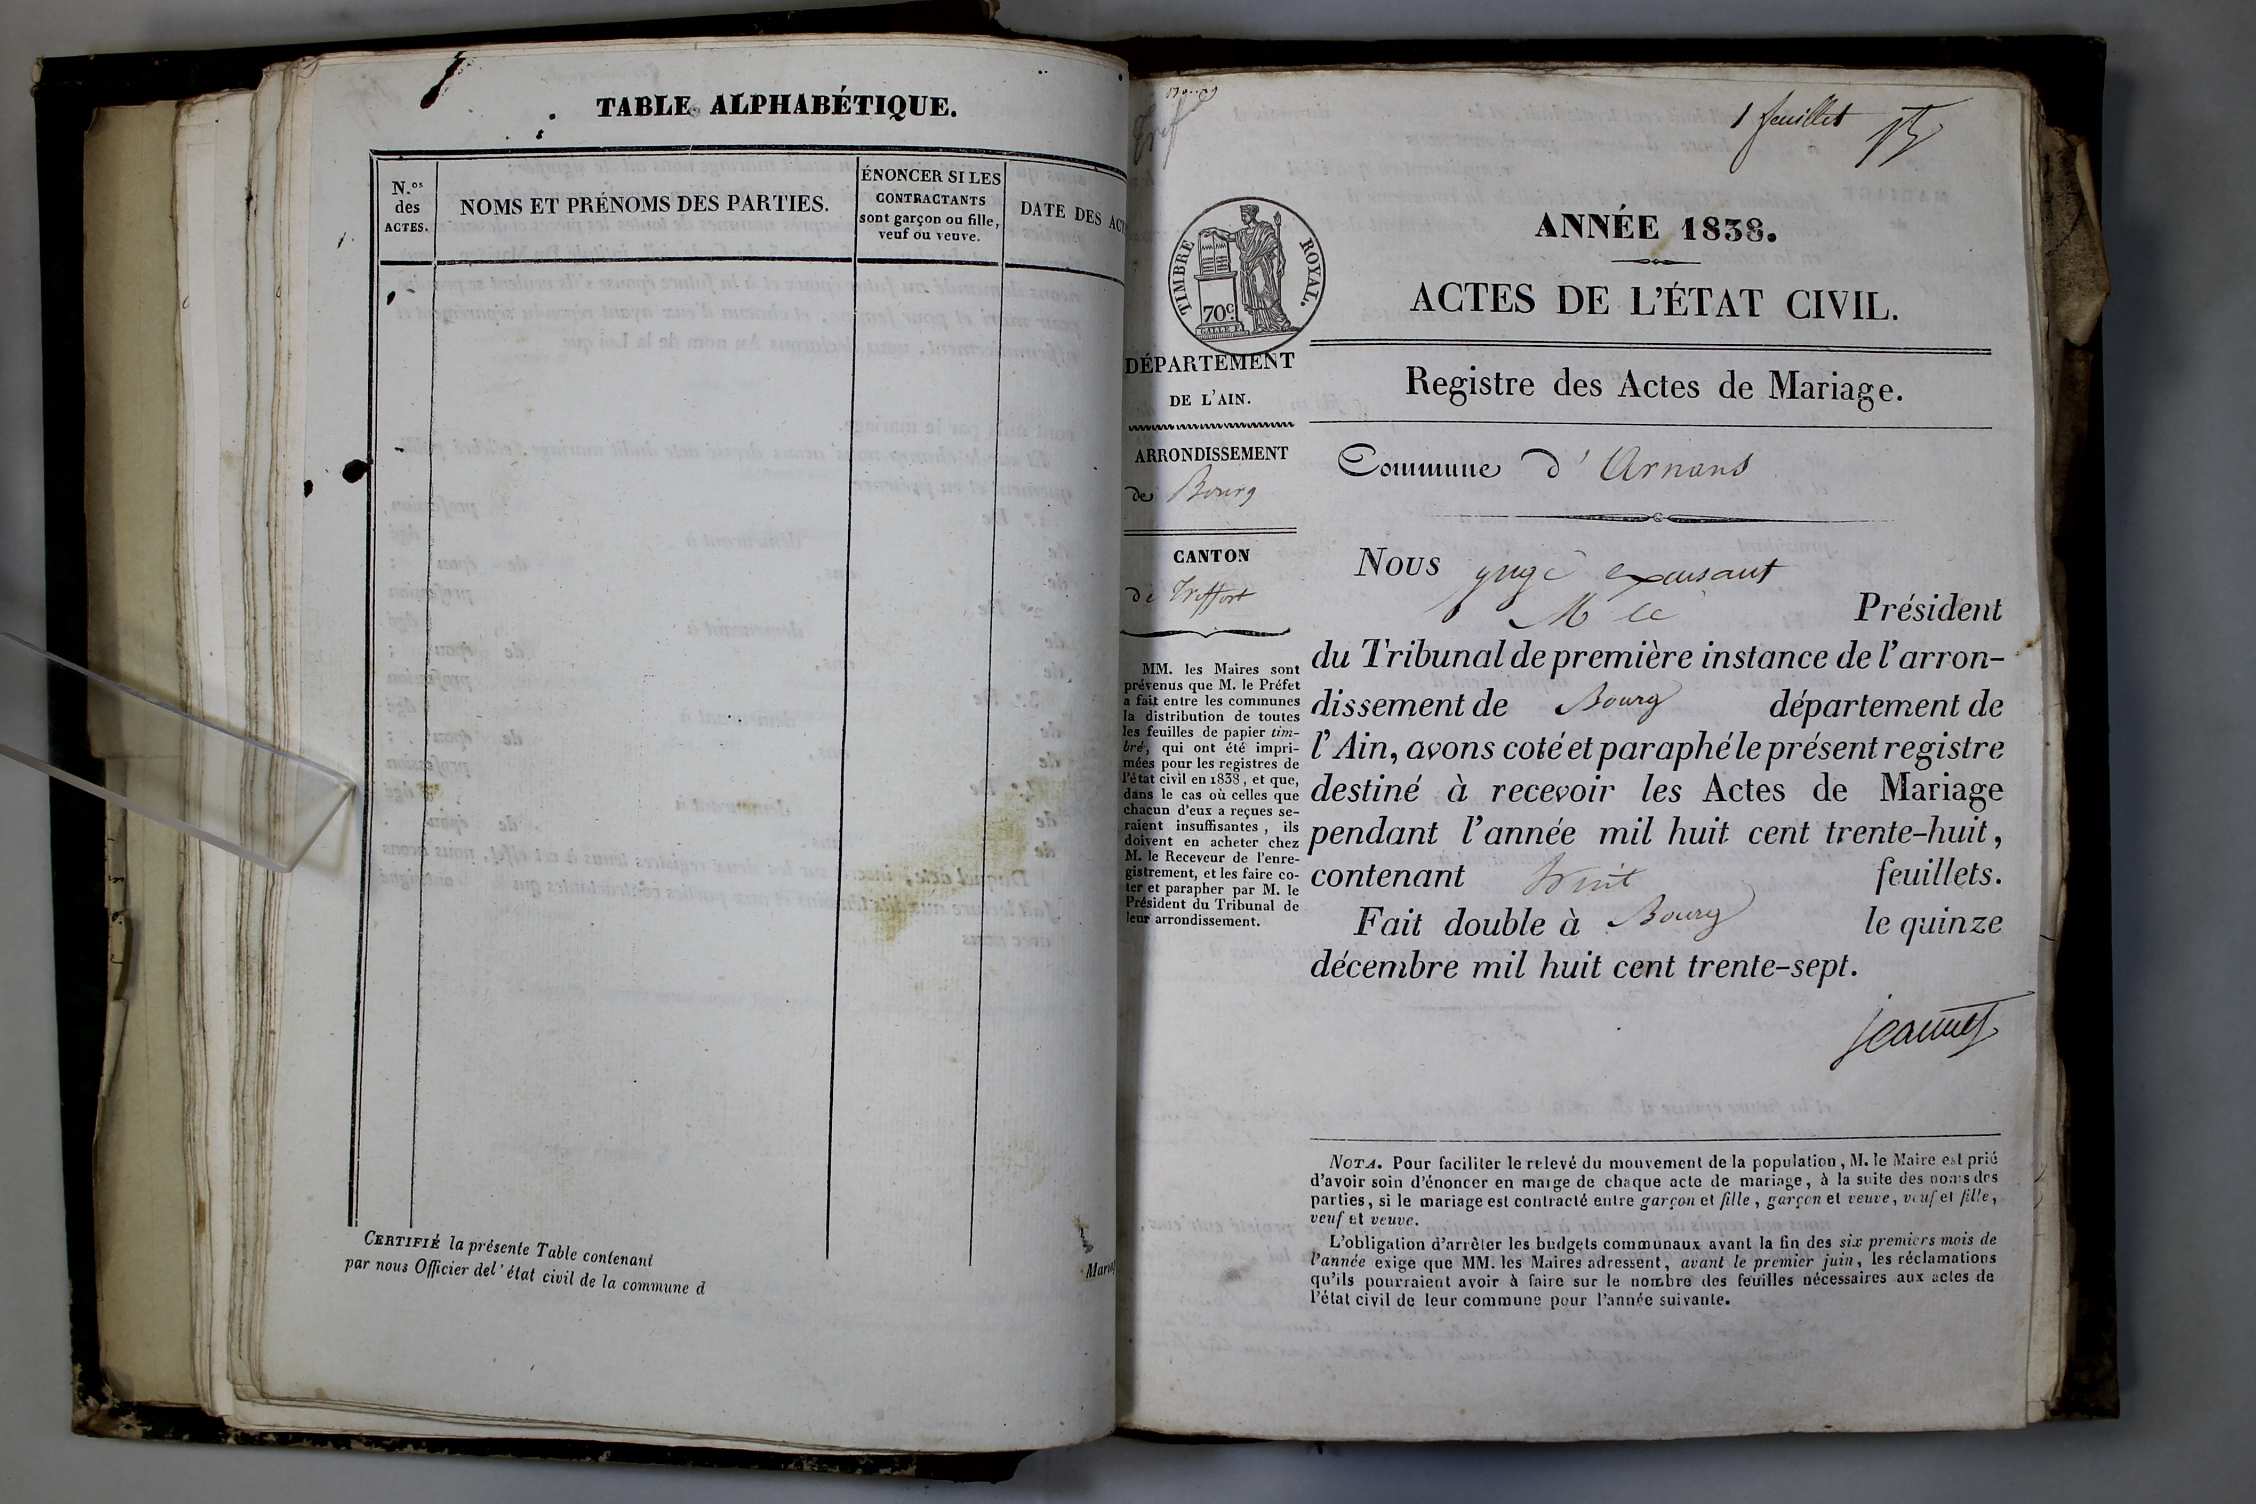 TABLE ALPHABÉTIQUE.
N.os
des
ACTES.
NOMS ET PRÉNOMS DES PARTIES.
ÉNONCER SI LES
CONTRACTANTS
sont garçon ou fille,
veuf ou veuve.
DATE DES ACT
CERTIFIÉ la présente Table contenant
par nous Officier del'état civil de la commune d
Maria
1 feuillet
TIMBRE ROYAL.
70c.
DÉPARTEMENT
DE L'AIN.
ARRONDISSEMENT
de Bourg
CANTON
de Treffort
MM. les Maires sont
prévenus que M. le Préfet
a fait entre les communes
la distribution de toutes
les feuilles de papier tim-
bré, qui ont été impri-
mées pour les registres de
l'état civil en 1838, et que,
dans le cas où celles que
chacun d'eux a reçues se-
raient insuffisantes, ils
doivent en acheter chez
M. le Receveur de l'enre-
gistrement, et les faire co-
ter et parapher par M. le
Président du Tribunal de
leur arrondissement.
ANNÉE 1838.
ACTES DE L'ÉTAT CIVIL.
Registre des Actes de Mariage.
Commune d'Arnans
Nous juge
M le Président
du Tribunal de première instance de l'arron-
dissement de Bourg département de
l'Ain, avons coté et paraphé le présent registre
destiné à recevoir les Actes de Mariage
pendant l'année mil huit cent trente-huit,
contenant huit feuillets.
Fait double à Bourg le quinze
décembre mil huit cent trente-sept.
Jeannet
NOTA. Pour faciliter le relevé du mouvement de la population, M. le Maire est prié
d'avoir soin d'énoncer en marge de chaque acte de mariage, à la suite des noms des
parties, si le mariage est contracté entre garçon et fille, garçon et veuve, veuf et fille,
veuf et veuve.
L'obligation d'arrêter les budgets communaux avant la fin des six premiers mois de
l'année exige que MM. les Maires adressent, avant le premier juin, les réclamations
qu'ils pourraient avoir à faire sur le nombre des feuilles nécessaires aux actes de
l'état civil de leur commune pour l'année suivante.